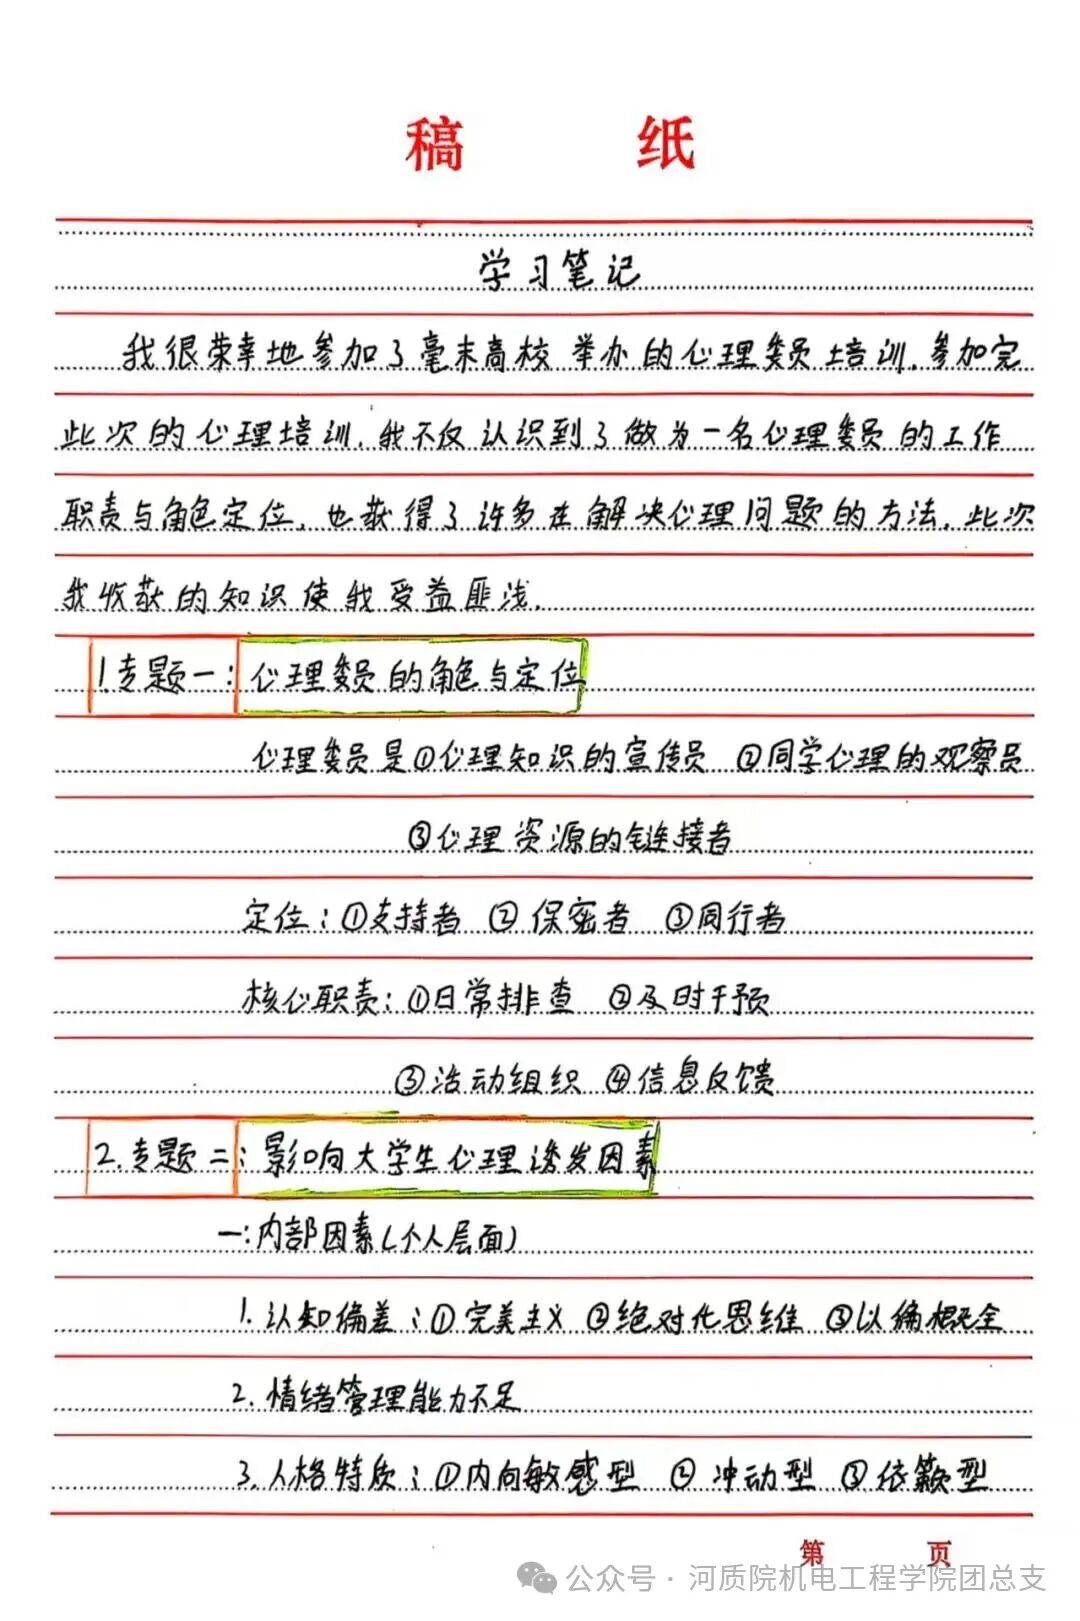 稿 纸
学习笔记
我很荣幸地参加了毫末高校举办的心理委员培训.参加完
此次的心理培训.我不仅认识到了做为一名心理委员的工作
职责与角色定位.也获得了许多在解决心理问题的方法.此次
我收获的知识使我受益匪浅.
1.专题一:心理委员的角色与定位
心理委员是①心理知识的宣传员 ②同学心理的观察员
③心理资源的链接者
定位:①支持者 ②保密者 ③同行者
核心职责:①日常排查 ②及时干预
③活动组织 ④信息反馈
2.专题二:影响大学生心理诱发因素
一:内部因素(个人层面)
1.认知偏差:①完美主义 ②绝对化思维 ③以偏概全
2.情绪管理能力不足
3.人格特质:①内向敏感型 ②冲动型 ③依赖型
第 页
公众号·河质院机电工程学院团总支